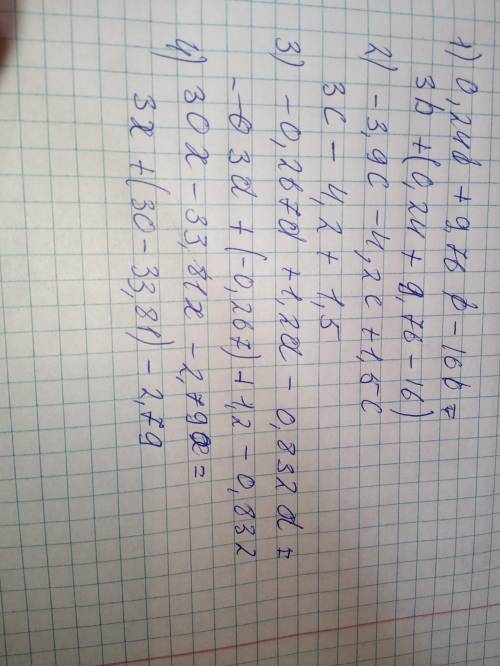 1) 0,24b + 9,76 b - 16b =
3b + (0,24 + 9,76 - 16)
2) - 3,9c - 4,2c + 1,5c
3c - 4,2 + 1,5
3) - 0,267d + 1,2d - 0,832d =
3d + (-0,267) + 1,2 - 0,832
4) 30x - 33,81x - 2,79x =
3x + (30 - 33,81) - 2,79